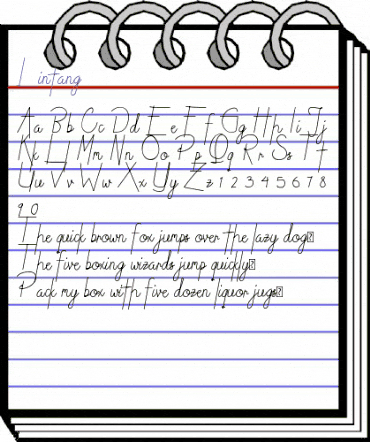 Lintang
Aa Bb Cc Dd Ee Ff Gg Hh Ii Jj
Kk Ll Mm Nn Oo Pp Qq Rr Ss Tt
Uu Vv Ww Xx Yy Zz 1 2 3 4 5 6 7 8
9 0
The quick brown fox jumps over the lazy dog
The five boxing wizards jump quickly
Pack my box with five dozen liquor jugs